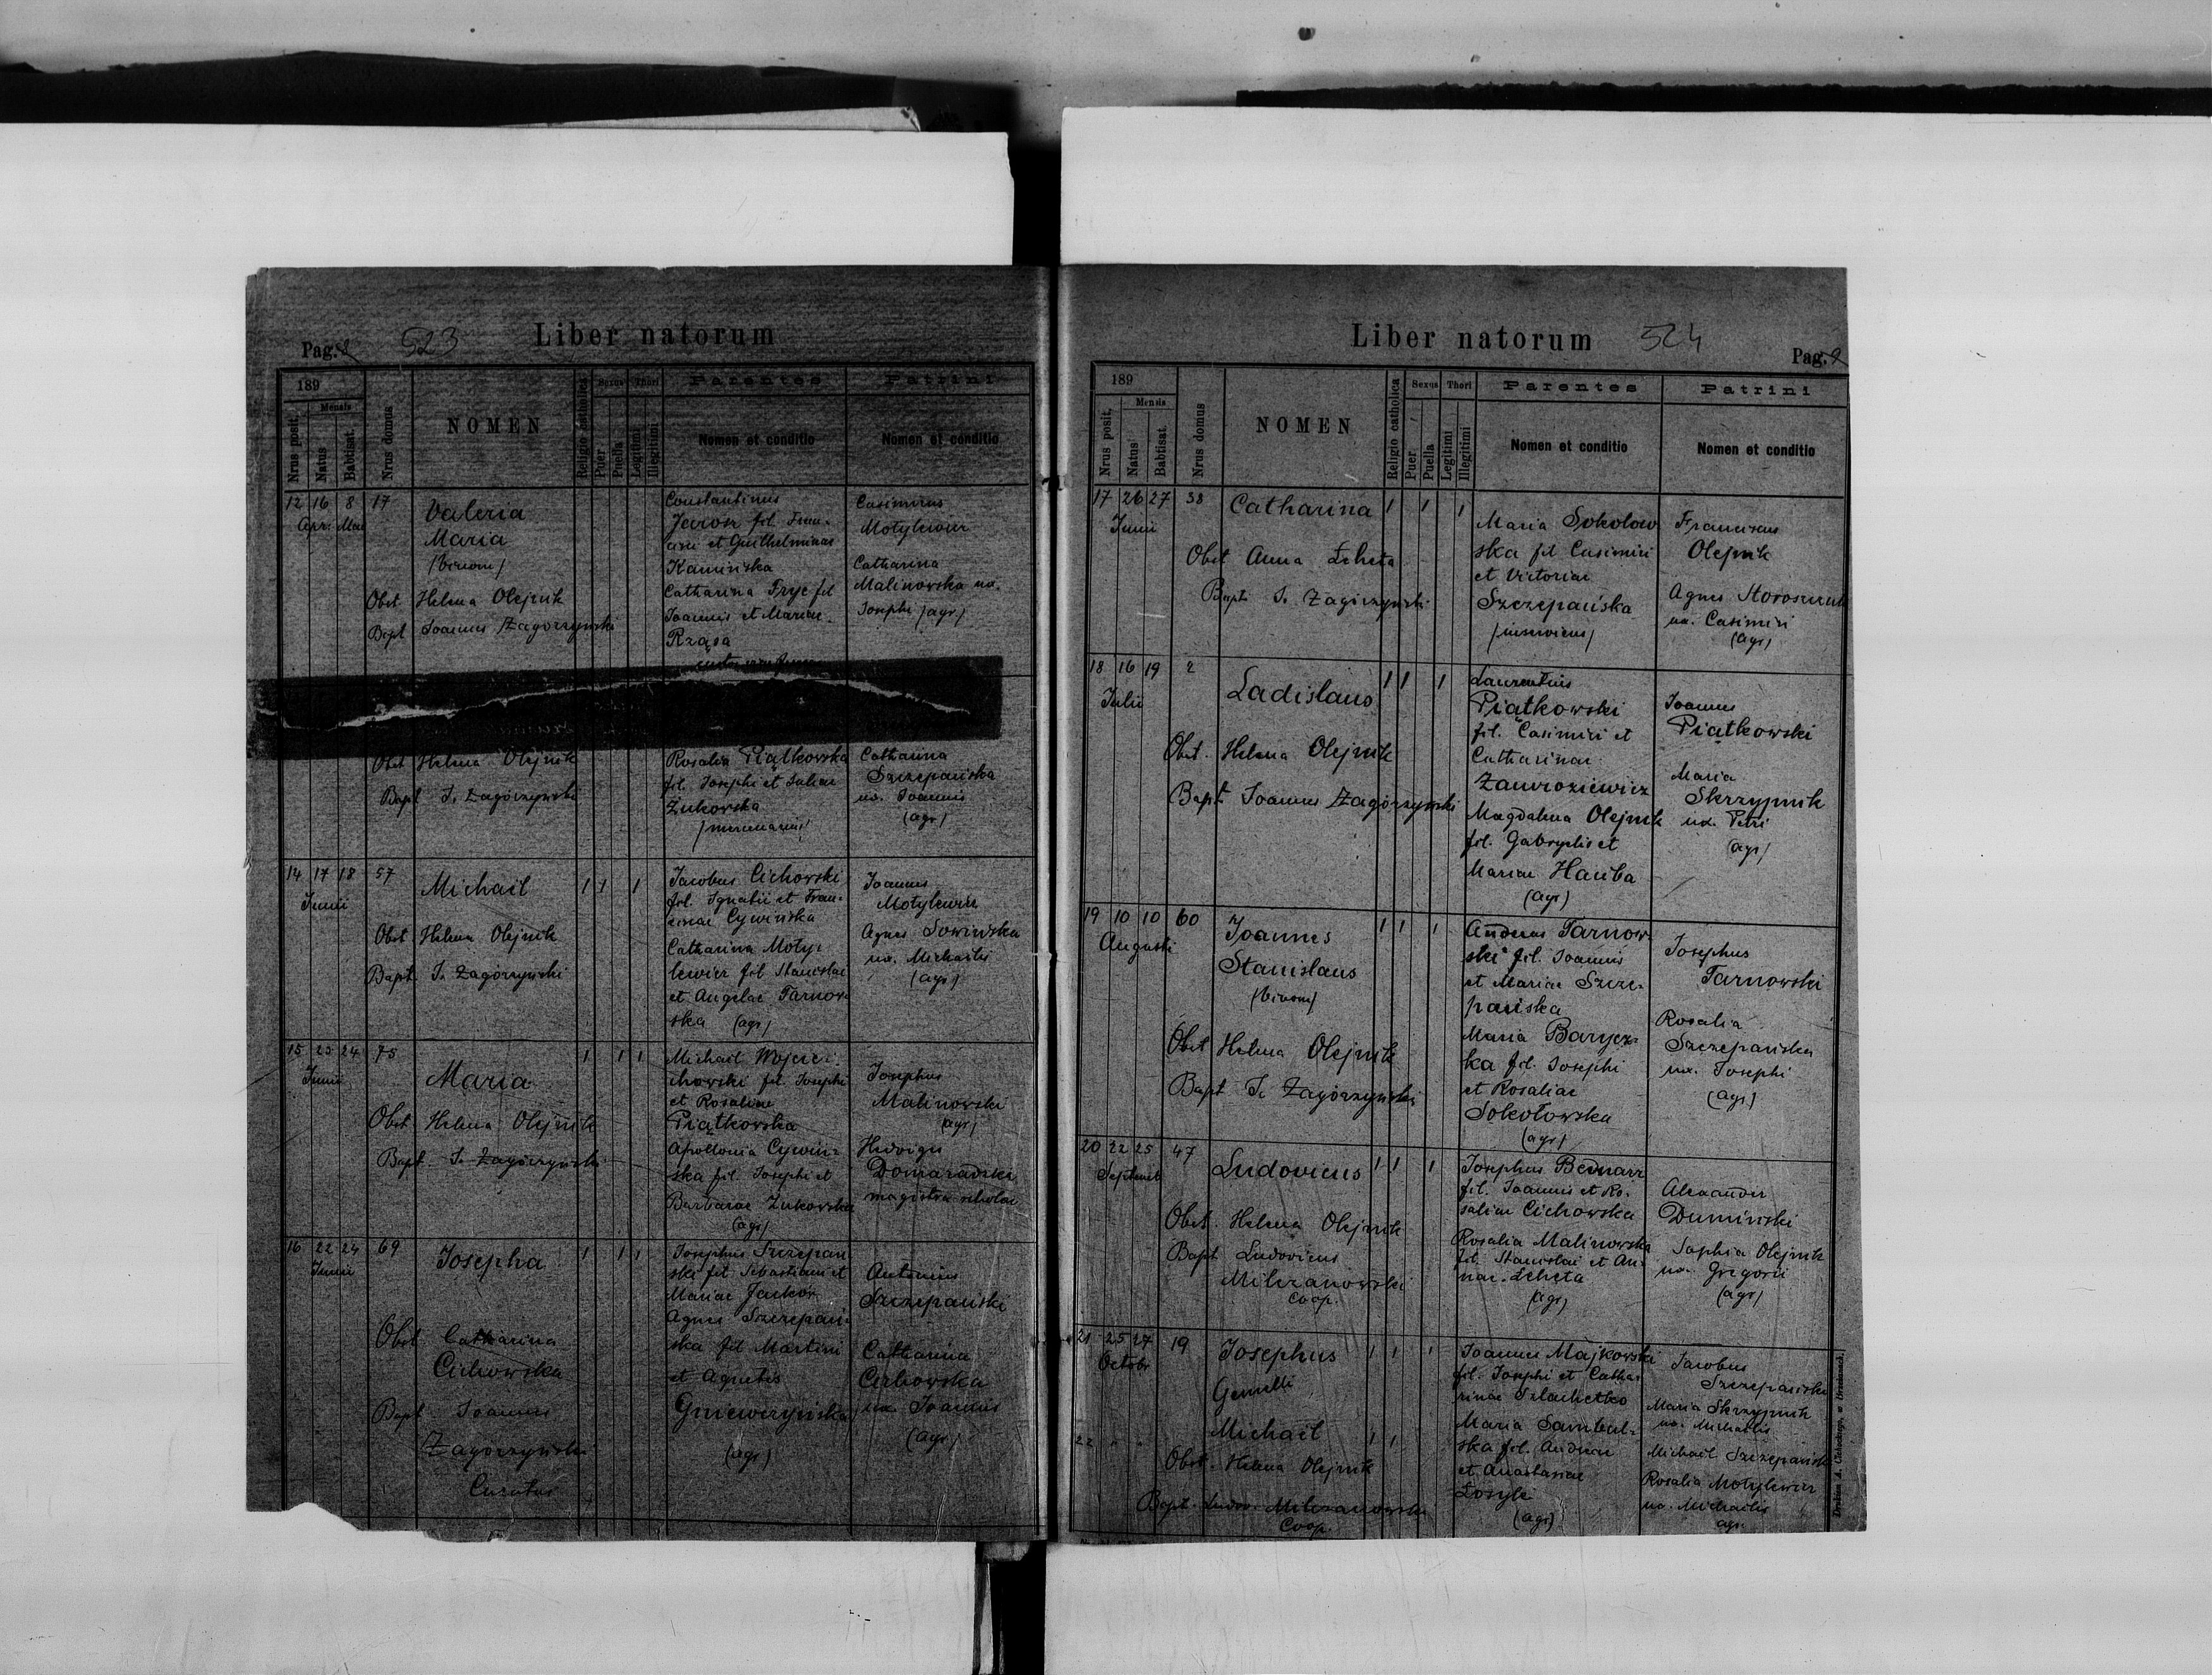 Pag. 2 523 Liber natorum
189
Mensis
Nrus posit.
Natus
Babtisat.
Nrus domus
NOMEN
Religio catholica
Sexus
Puer
Puella
Thori
Legitimi
Illegitimi
Parentes
Nomen et conditio
Patrini
Nomen et conditio
12 16 8 17
Apr. Mai
Valeria
Maria
(binom)
Obst Helena Olejnik
Bapt Joannes Zagórzyński
Constantinus
Jarosz fil. Fran-
cisci et Guilhelminae
Kamińska
Catharina Fryc fil
Joannis et Mariae
Rząsa
Casimirus
Motylewicz
Catharina
Malinowska ux.
Josephi (agr)
Obst Helena Olejnik
Bapt J. Zagórzyński
Rosalia Piątkowska
fil. Josephi et Juliae
Żukowska
/mercenarius/
Catharina
Szczepańska
ux. Joannis
(agr)
14 17 18 57
Junii
Michaël 1 1 1
Obst Helena Olejnik
Bapt J. Zagórzyński
Jacobus Cichowski
fil. Ignatii et Fran-
ciscae Cywińska
Catharina Moty-
lewicz fil Stanislai
et Angelae Tarnow-
ska (agr)
Joannes
Motylewicz
Agnes Sowińska
ux. Michaëlis
(agr)
15 23 24 75
Junii
Maria 1 1 1
Obst Helena Olejnik
Bapt J. Zagórzyński
Michaël Wojcie-
chowski fil. Josephi
et Rosaliae
Piątkowska
Apollonia Cywiń-
ska fil. Josephi et
Barbarae Żukowska
(agr)
Josephus
Malinowski
(agr)
Hedvigis
Domaradzka
magistra scholae
16 22 24 69
Junii
Josepha 1 1 1
Obst Catharina
Cichowska
Bapt Joannes
Zagórzyński
Curatus
Josephus Szczepań
ski fil Sebastiani et
Mariae Jacków
Agnes Szczepań-
ska fil Martini
et Agnetis
Gniewczyńska
(agr)
Antonius
Szczepański
Catharina
Cichowska
ux. Joannis
(agr)
Liber natorum 524 Pag. 2
189
Mensis
Nrus posit.
Natus
Babtisat.
Nrus domus
NOMEN
Religio catholica
Sexus
Puer
Puella
Thori
Legitimi
Illegitimi
Parentes
Nomen et conditio
Patrini
Nomen et conditio
17 26 27 38
Junii
Catharina 1 1 1
Obst Anna Łcheta
Bapt J. Zagórzyński
Maria Sokołow
ska fil Casimiri
et Victoriae
Szczepańska
/inserviens/
Franciscus
Olejnik
Agnes
ux. Casimiri
(agr)
18 16 19 2
Julii
Ladislaus 1 1 1
Obst. Helena Olejnik
Bapt Joannes Zagórzyński
Laurentius
Piątkowski
fil. Casimiri et
Catharinae
Zawroziewicz
Magdalena Olejnik
fil. Gabryelis et
Mariae Hańba
(agr)
Joannes
Piątkowski
Maria
Skrzypnik
ux. Petri
(agr)
19 10 10 60
Augusti
Joannes 1 1 1
Stanislaus
(binom)
Obst Helena Olejnik
Bapt J. Zagórzyński
Andreas Tarnow-
ski fil. Joannis
et Mariae Szcze-
pańska
Maria Barycz-
ka fil. Josephi
et Rosaliae
Sokołowska
(agr)
Josephus
Tarnowski
Rosalia
Szczepańska
ux. Josephi
(agr)
20 22 25 47
Septemb
Ludovicus 1 1 1
Obst. Helena Olejnik
Bapt Ludovicus
Milczanowski
Coop.
Josephus Bednarz
fil. Joannis et Ro-
saliae Cichowska
Rosalia Malinowska
fil. Stanislai et An-
nae Łcheta
(agr)
Alexander
Dumiński
Sophia Olejnik
ux. Gregorii
(agr)
21 25 27 19
Octobr
Josephus 1 1 1
Gemelli
22 " "
Michaël 1 1
Obst. Helena Olejnik
Bapt. Ludov. Milczanowski
Coop.
Joannes Majkowski
fil. Josephi et Catha-
rinae Szlachetko
Maria Sambul-
ska fil. Andreae
et Anastasiae
Łosyk
(agr)
Jacobus
Szczepański
Maria Skrzypnik
ux. Michaëlis
Michaël Szczepański
Rosalia Motylewicz
ux. Michaëlis
agr.